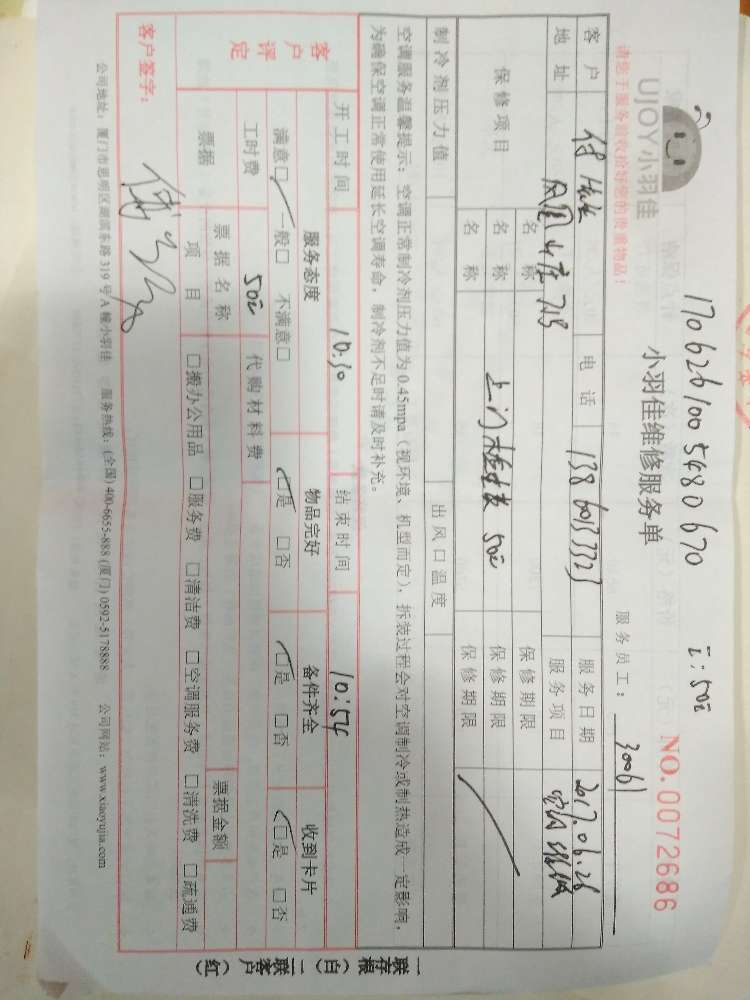 170626100548 0670
工:50元
UJOY小羽佳
小羽佳维修服务单
NO.0072686
请您于服务前收拾好您的贵重物品!
服务员工: 30061
客户
电话
服务日期 2017.06.26
地址 凤凰山庄
服务项目
保修项目
名称
保修期限
名称 上门检查费 50元
保修期限
名称
保修期限
制冷剂压力值
出风口温度
空调服务温馨提示:空调正常制冷剂压力值为0.45mpa(视环境、机型而定),拆装过程会对空调制冷或制热造成一定影响,
为确保空调正常使用延长空调寿命,制冷剂不足时请及时补充。
开工时间 10:30 结束时间 10:54
客户评定
服务态度 物品完好 备件齐全 收到卡片
满意□ 一般□ 不满意□ □是 □否 □是 □否 □是 □否
工时费 50元 代购材料费
票据
票据名称
票据金额
项目 □搬办公用品 □服务费 □清洁费 □空调服务费 □清洗费 □疏通费
客户签字:
公司地址:厦门市思明区湖滨东路319号A幢小羽佳 服务热线:(全国)400-6655-888 (厦门)0592-5178888 公司网站:www.xiaoyujia.com
一联存根(白)二联客户(红)